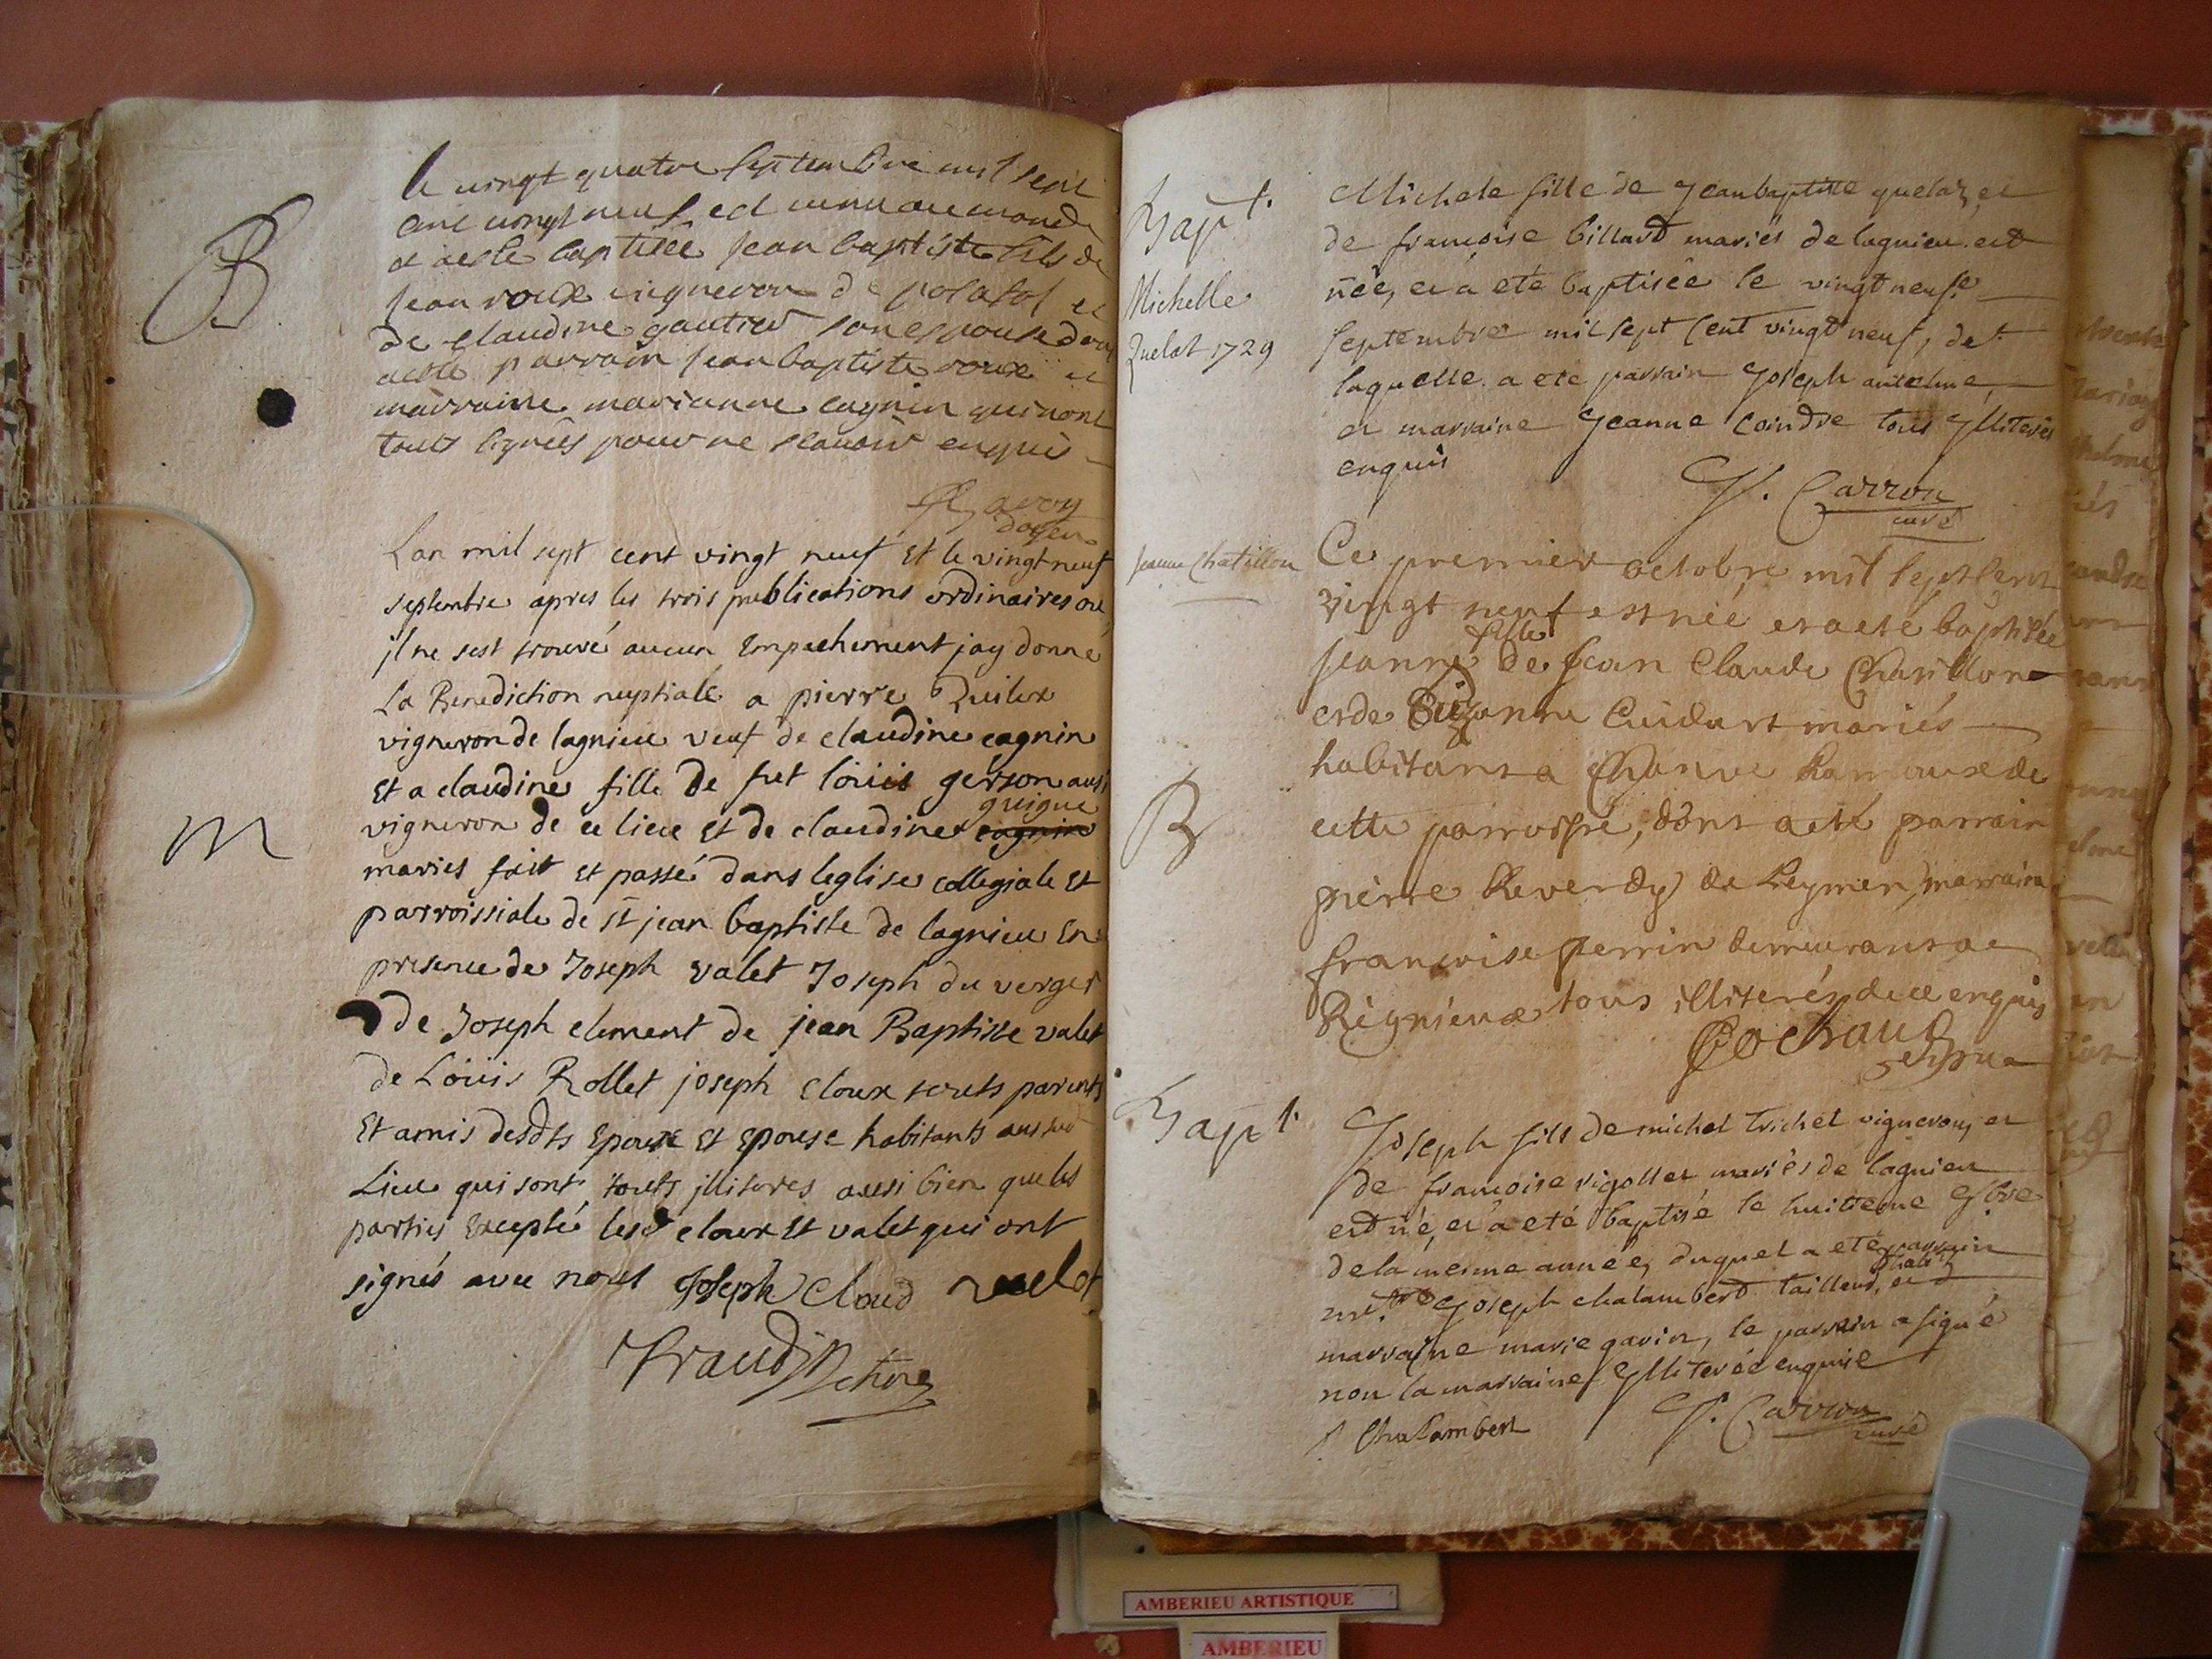 B
le vingt quatre septembre mil sept
cent vingt neuf est venu au monde
et aesté baptissé jean baptiste fils de
jean roux vigneron de posafol et
de claudine gautier son espouse dont
aesté parrain jean baptiste roux et
marraine marianne cagnin qui nont
touts signés pour ne scavoir enquis
doyen
M
Lan mil sept cent vingt neuf Et le vingt neuf
septembre apres les trois publications ordinaires ou
il ne sest trouvé aucun Empechement jay donné
La Benediction nuptiale a pierre Quilex
vigneron de lagnieu veuf de claudine cagnin
Et a claudine fille de fut loüis gerson aussi
guigue
vigneron de ce lieu Et de claudine cagnin
mariés fait et passé dans leglise collegiale Et
parroissiale de st jean baptiste de lagnieu En
presence de Joseph valet Joseph du verger
de Joseph clement de jean Baptiste valet
de Loüis Rollet joseph cloux touts parents
Et amis desdts Epoux Et Epouse habitants aussud
Lieu qui sont touts illiteres aussi bien que les
parties Excepté lesd cloux Et valet qui ont
signés avec nous Joseph Cloud valet
Bapt.
Michelle
Quelat 1729
Michele fille de Jean baptiste quelaz, et
de francoise billard mariés de lagnieu est
née, et á eté baptisée le vingt neufe
septembre mil sept cent vingt neuf, de
laquelle a eté parrain Joseph antelme,
et marraine Jeanne Coindre tous Illiterés
enquis
J. Carron
curé
Jeanne Chatillon
B
Ce premier octobre mil sept cent
vingt neuf est née et a esté baptisée
fille
Jeanne de Jean Claude Chatillon
et de Suzanne Cuidart mariés
habitans a Chanve Ramoux de
cette parroisse, dont a esté parrain
pierre Reverdy de Leymen, marraine
francoise perrin demeurans a
Rignieux tous illiterés de ce enquis
Cochaud
Bapt.
Joseph fils de michel trichet vigneron, et
de francoise rigollet mariés de lagnieu
est né, et a eté baptisé le huitieme 8bre
de la mesme année, duquel a eté parrain
Joseph chalambert tailleur, et
marraine marie gavin, le parrain a signé
non la marraine Illiterée enquise
J Chalambert
J. Carron
curé
AMBERIEU ARTISTIQUE
AMBERIEU